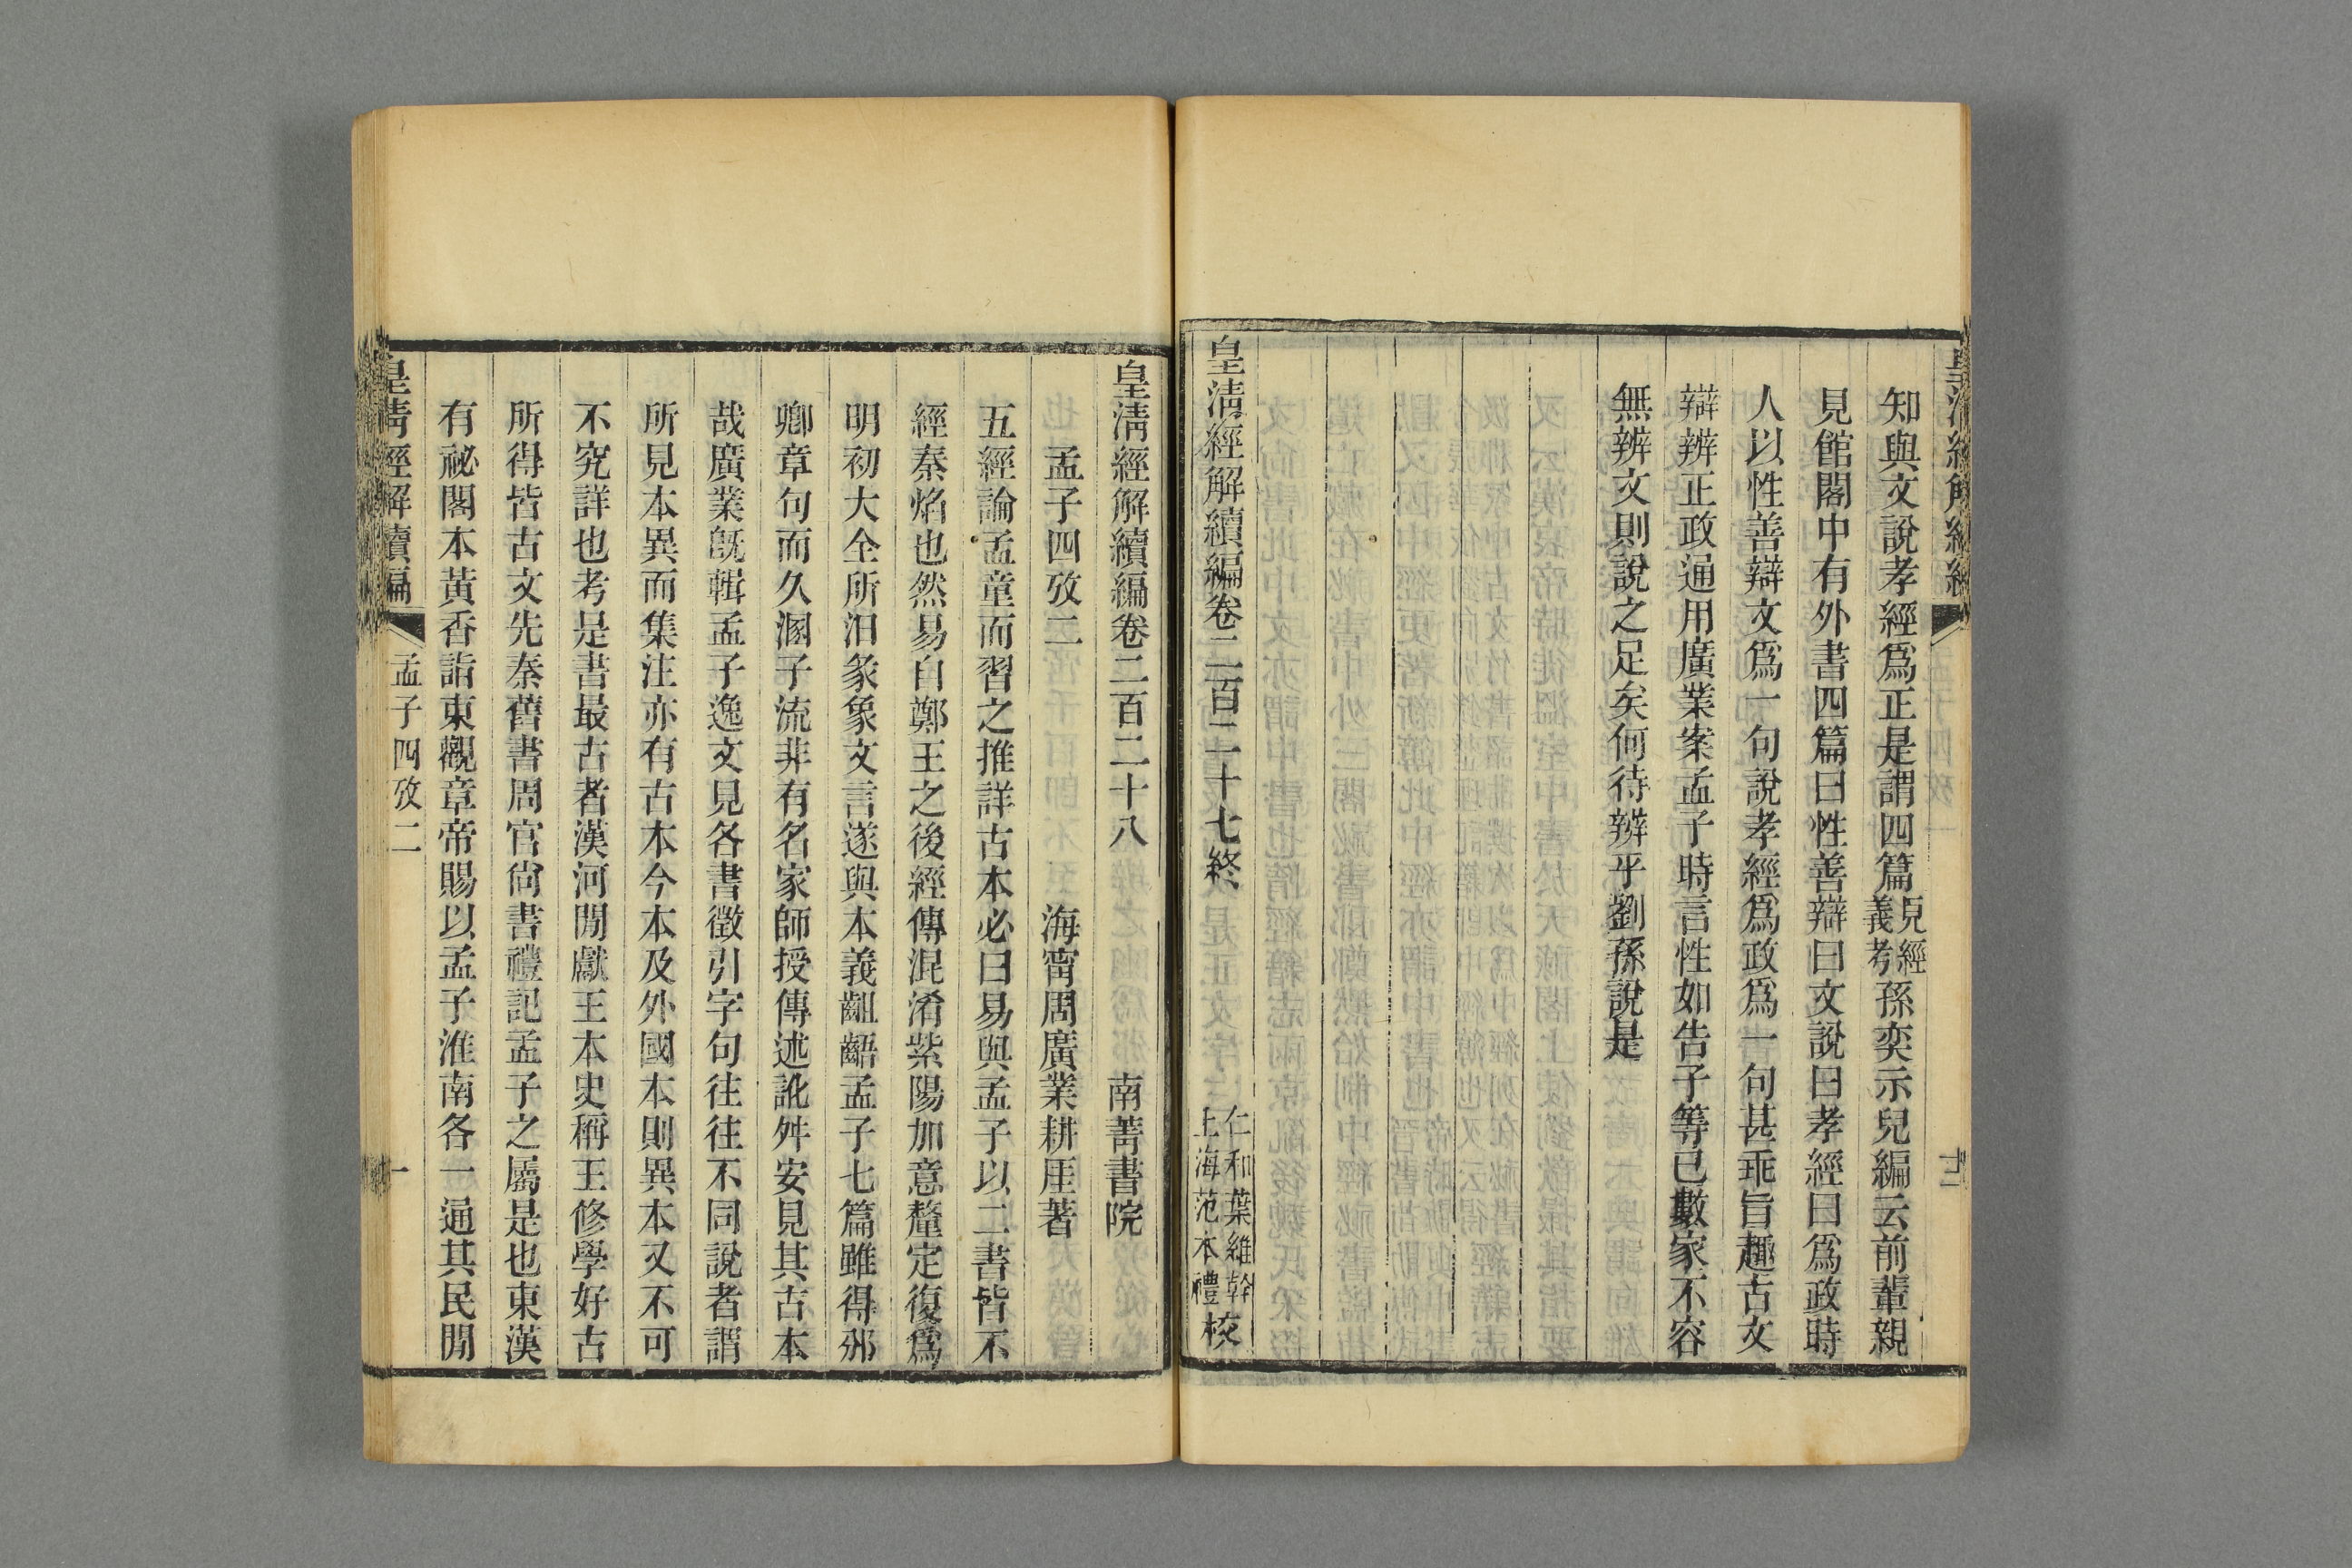 知與文說孝經爲正是謂四篇見經義考孫奕示兒編云前輩親
見館閣中有外書四篇曰性善辯曰文說曰孝經曰爲政時
人以性善辯文爲一句說孝經爲政爲一句甚乖旨趣古文
辯辨正政通用廣業案孟子時言性如告子等已數家不容
無辨文則說之足矣何待辨乎劉孫說是
皇淸經解續編卷二百二十七終
仁和葉維幹
上海范本禮
校
皇淸經解續編卷二百二十八
南菁書院
孟子四攷二
海甯周廣業耕厓著
五經論孟童而習之推詳古本必曰易與孟子以二書皆不
經秦焰也然易自鄭王之後經傳混淆紫陽加意釐定復爲
明初大全所汩彖象文言遂與本義齟齬孟子七篇雖得邠
卿章句而久溷子流非有名家師授傳述訛舛安見其古本
哉廣業旣輯孟子逸文見各書徵引字句往往不同說者謂
所見本異而集注亦有古本今本及外國本則異本又不可
不究詳也考是書最古者漢河閒獻王本史稱王修學好古
所得皆古文先秦舊書周官尙書禮記孟子之屬是也東漢
有祕閣本黃香詣東觀章帝賜以孟子淮南各一通其民閒
皇淸經解續編
孟子四攷二
一